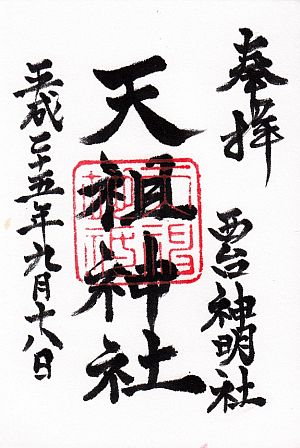 奉拝
西台 神明社
天祖神社
平成二十五年九月十八日